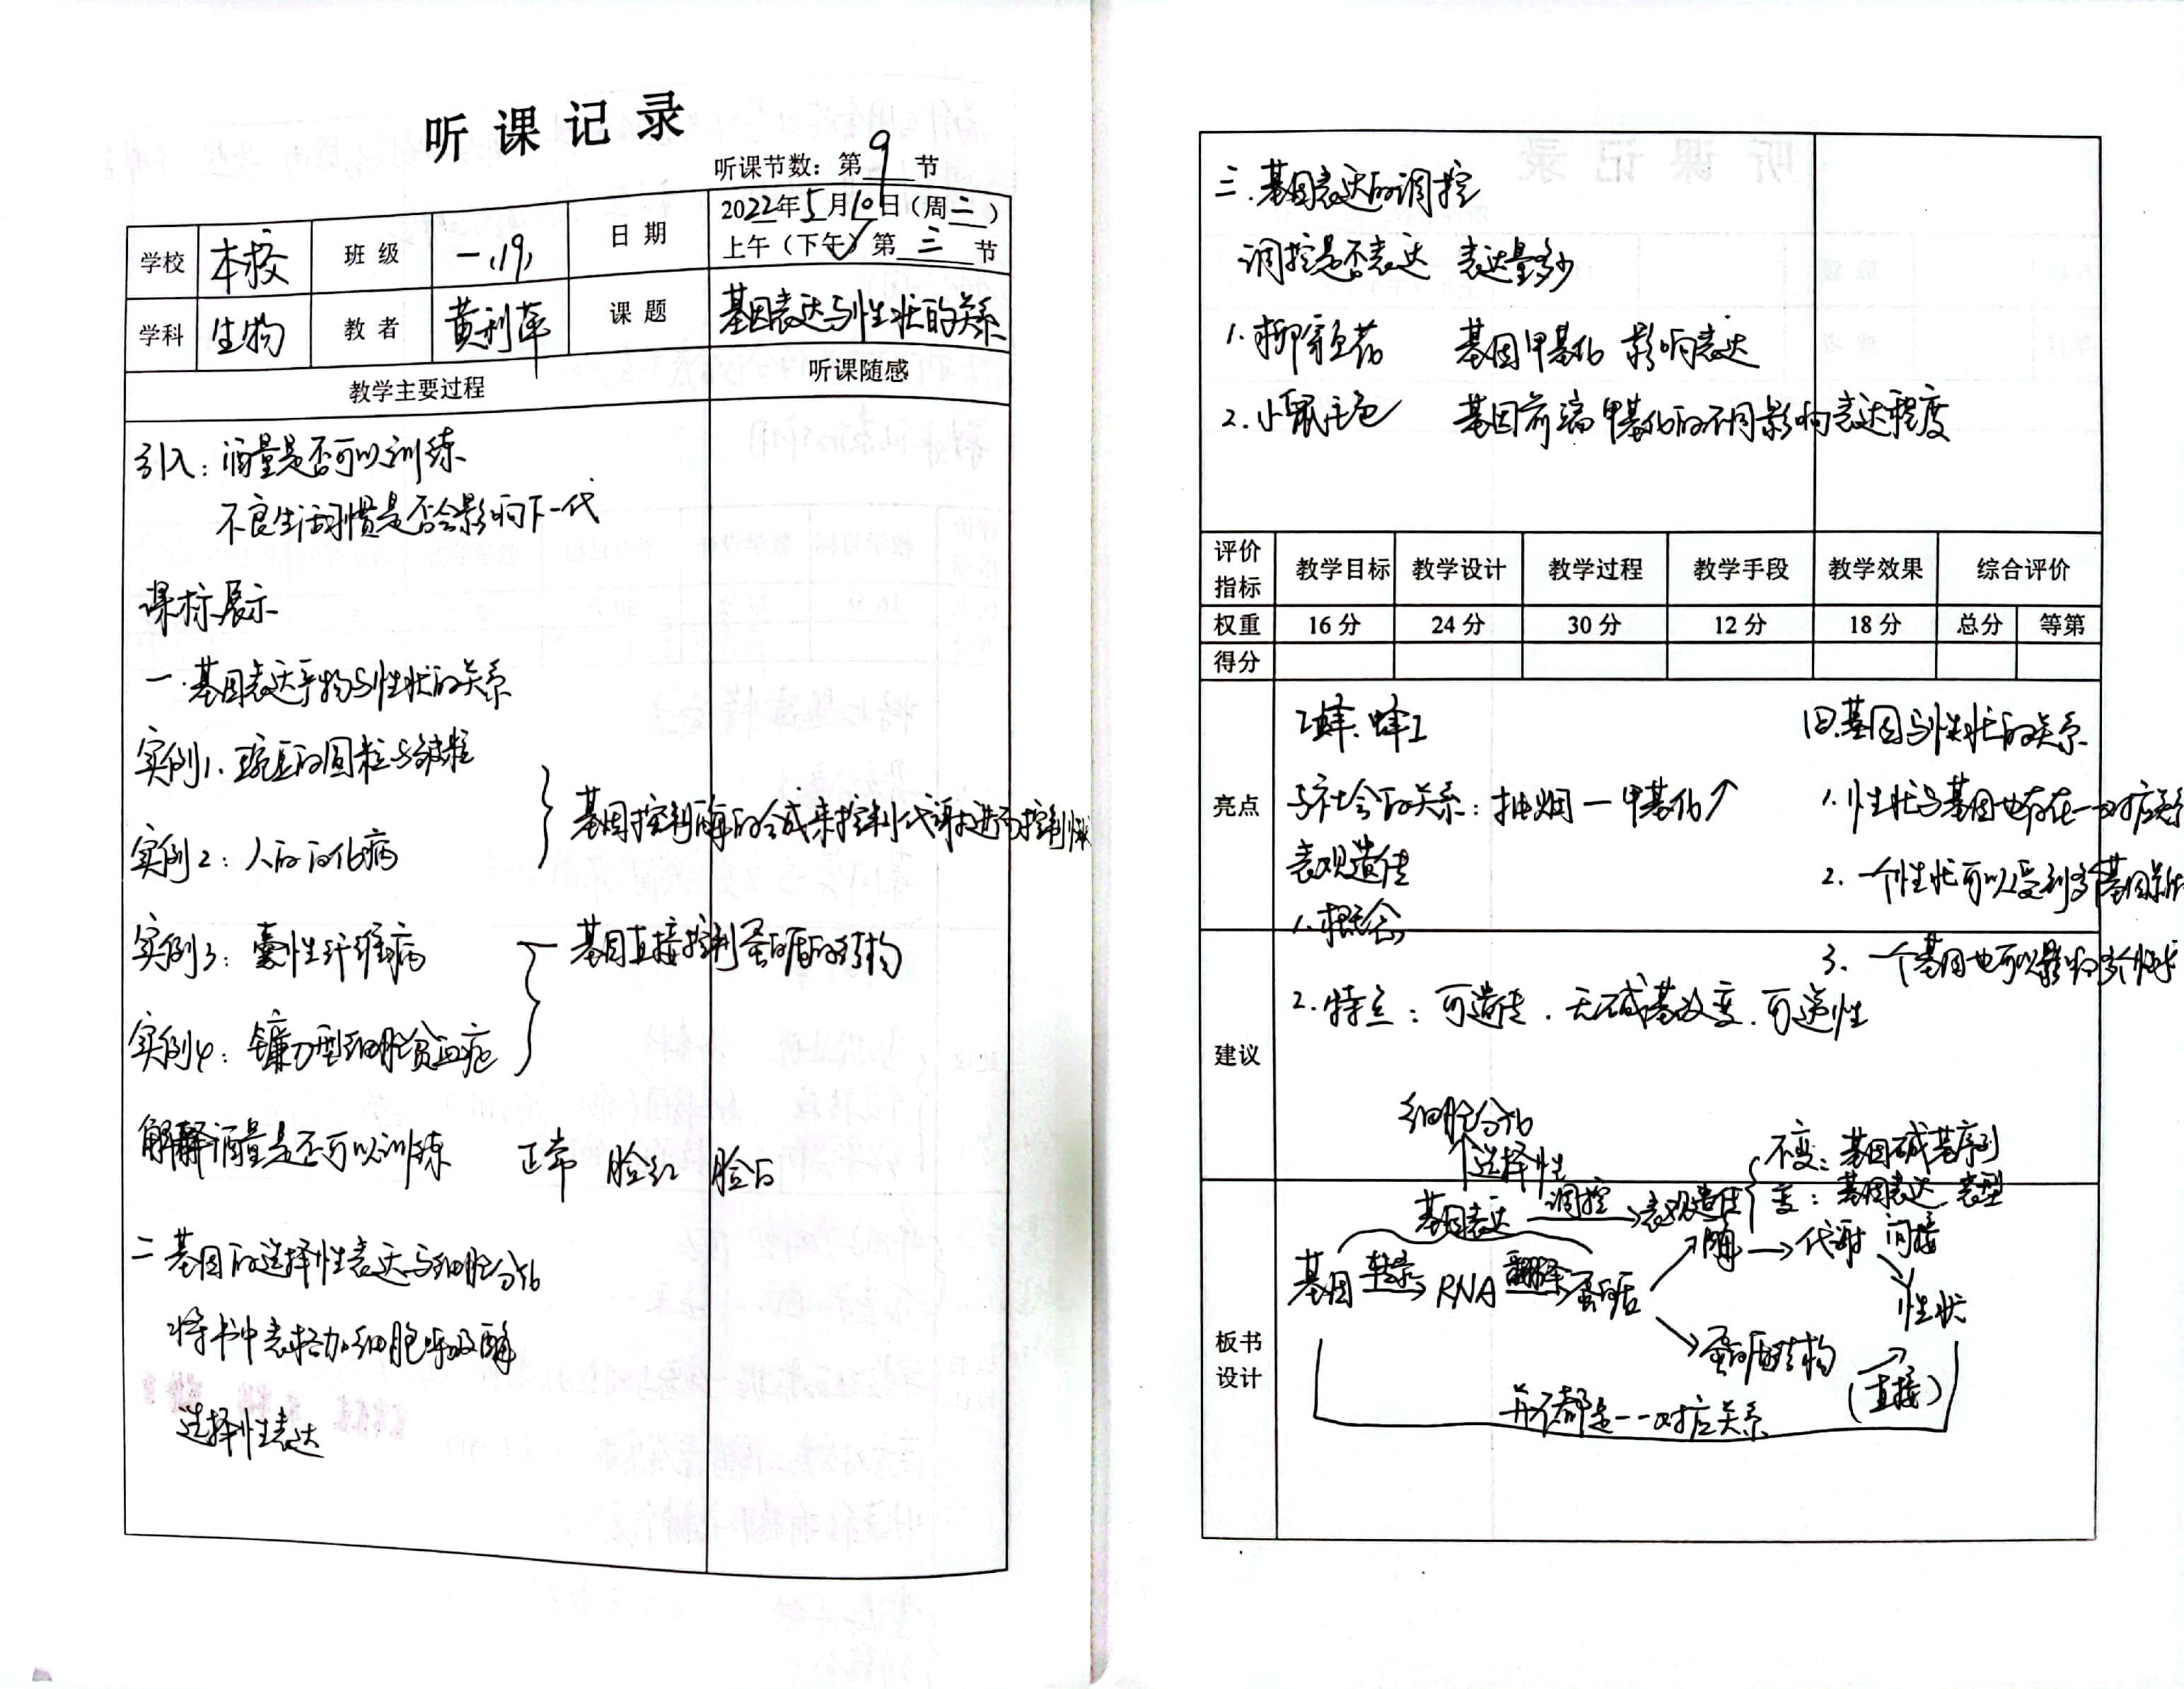 听课记录
听课节数：第9节
学校 本校 班级 一.19) 日期 2022年5月10日（周二）
上午（下午）第三节
学科 生物 教者 黄利萍 课题 基因表达与性状的关系
教学主要过程 听课随感
引入：酒量是否可以训练
不良生活习惯是否会影响下一代
课标展示
一.基因表达产物与性状的关系
实例1.豌豆的圆粒与皱粒
基因控制酶的合成来控制代谢进而控制性状
实例2：人的白化病
实例3：囊性纤维病 基因直接控制蛋白质的结构
实例4：镰刀型细胞贫血症
解释酒量是否可以训练 正常 脸红 脸白
二 基因的选择性表达与细胞分化
将书中表格加细胞呼吸酶
选择性表达
三.基因表达的调控
调控是否表达 表达量多少
1.柳穿鱼花 基因甲基化 影响表达
2.小鼠毛色 基因前端甲基化的不同影响表达程度
评价指标 教学目标 教学设计 教学过程 教学手段 教学效果 综合评价
权重 16分 24分 30分 12分 18分 总分 等第
得分
亮点
工蜂.蜂王
与社会的关系：抽烟—甲基化↑
表观遗传
1.概念
四.基因与性状的关系
1.性状与基因也存在一一对应关系
2.一个性状可以受到多个基因影响
3.一个基因也可以影响多个性状
建议
2.特点：可遗传.无碱基改变.可逆性
板书设计
细胞分化
↑选择性
基因表达 调控→表观遗传 不变：基因碱基序列
变：基因表达.表型
基因 转录→ RNA 翻译→ 蛋白质 ↗酶→代谢 间接
↘性状
↘蛋白质结构 ↗(直接)
并不都是一一对应关系